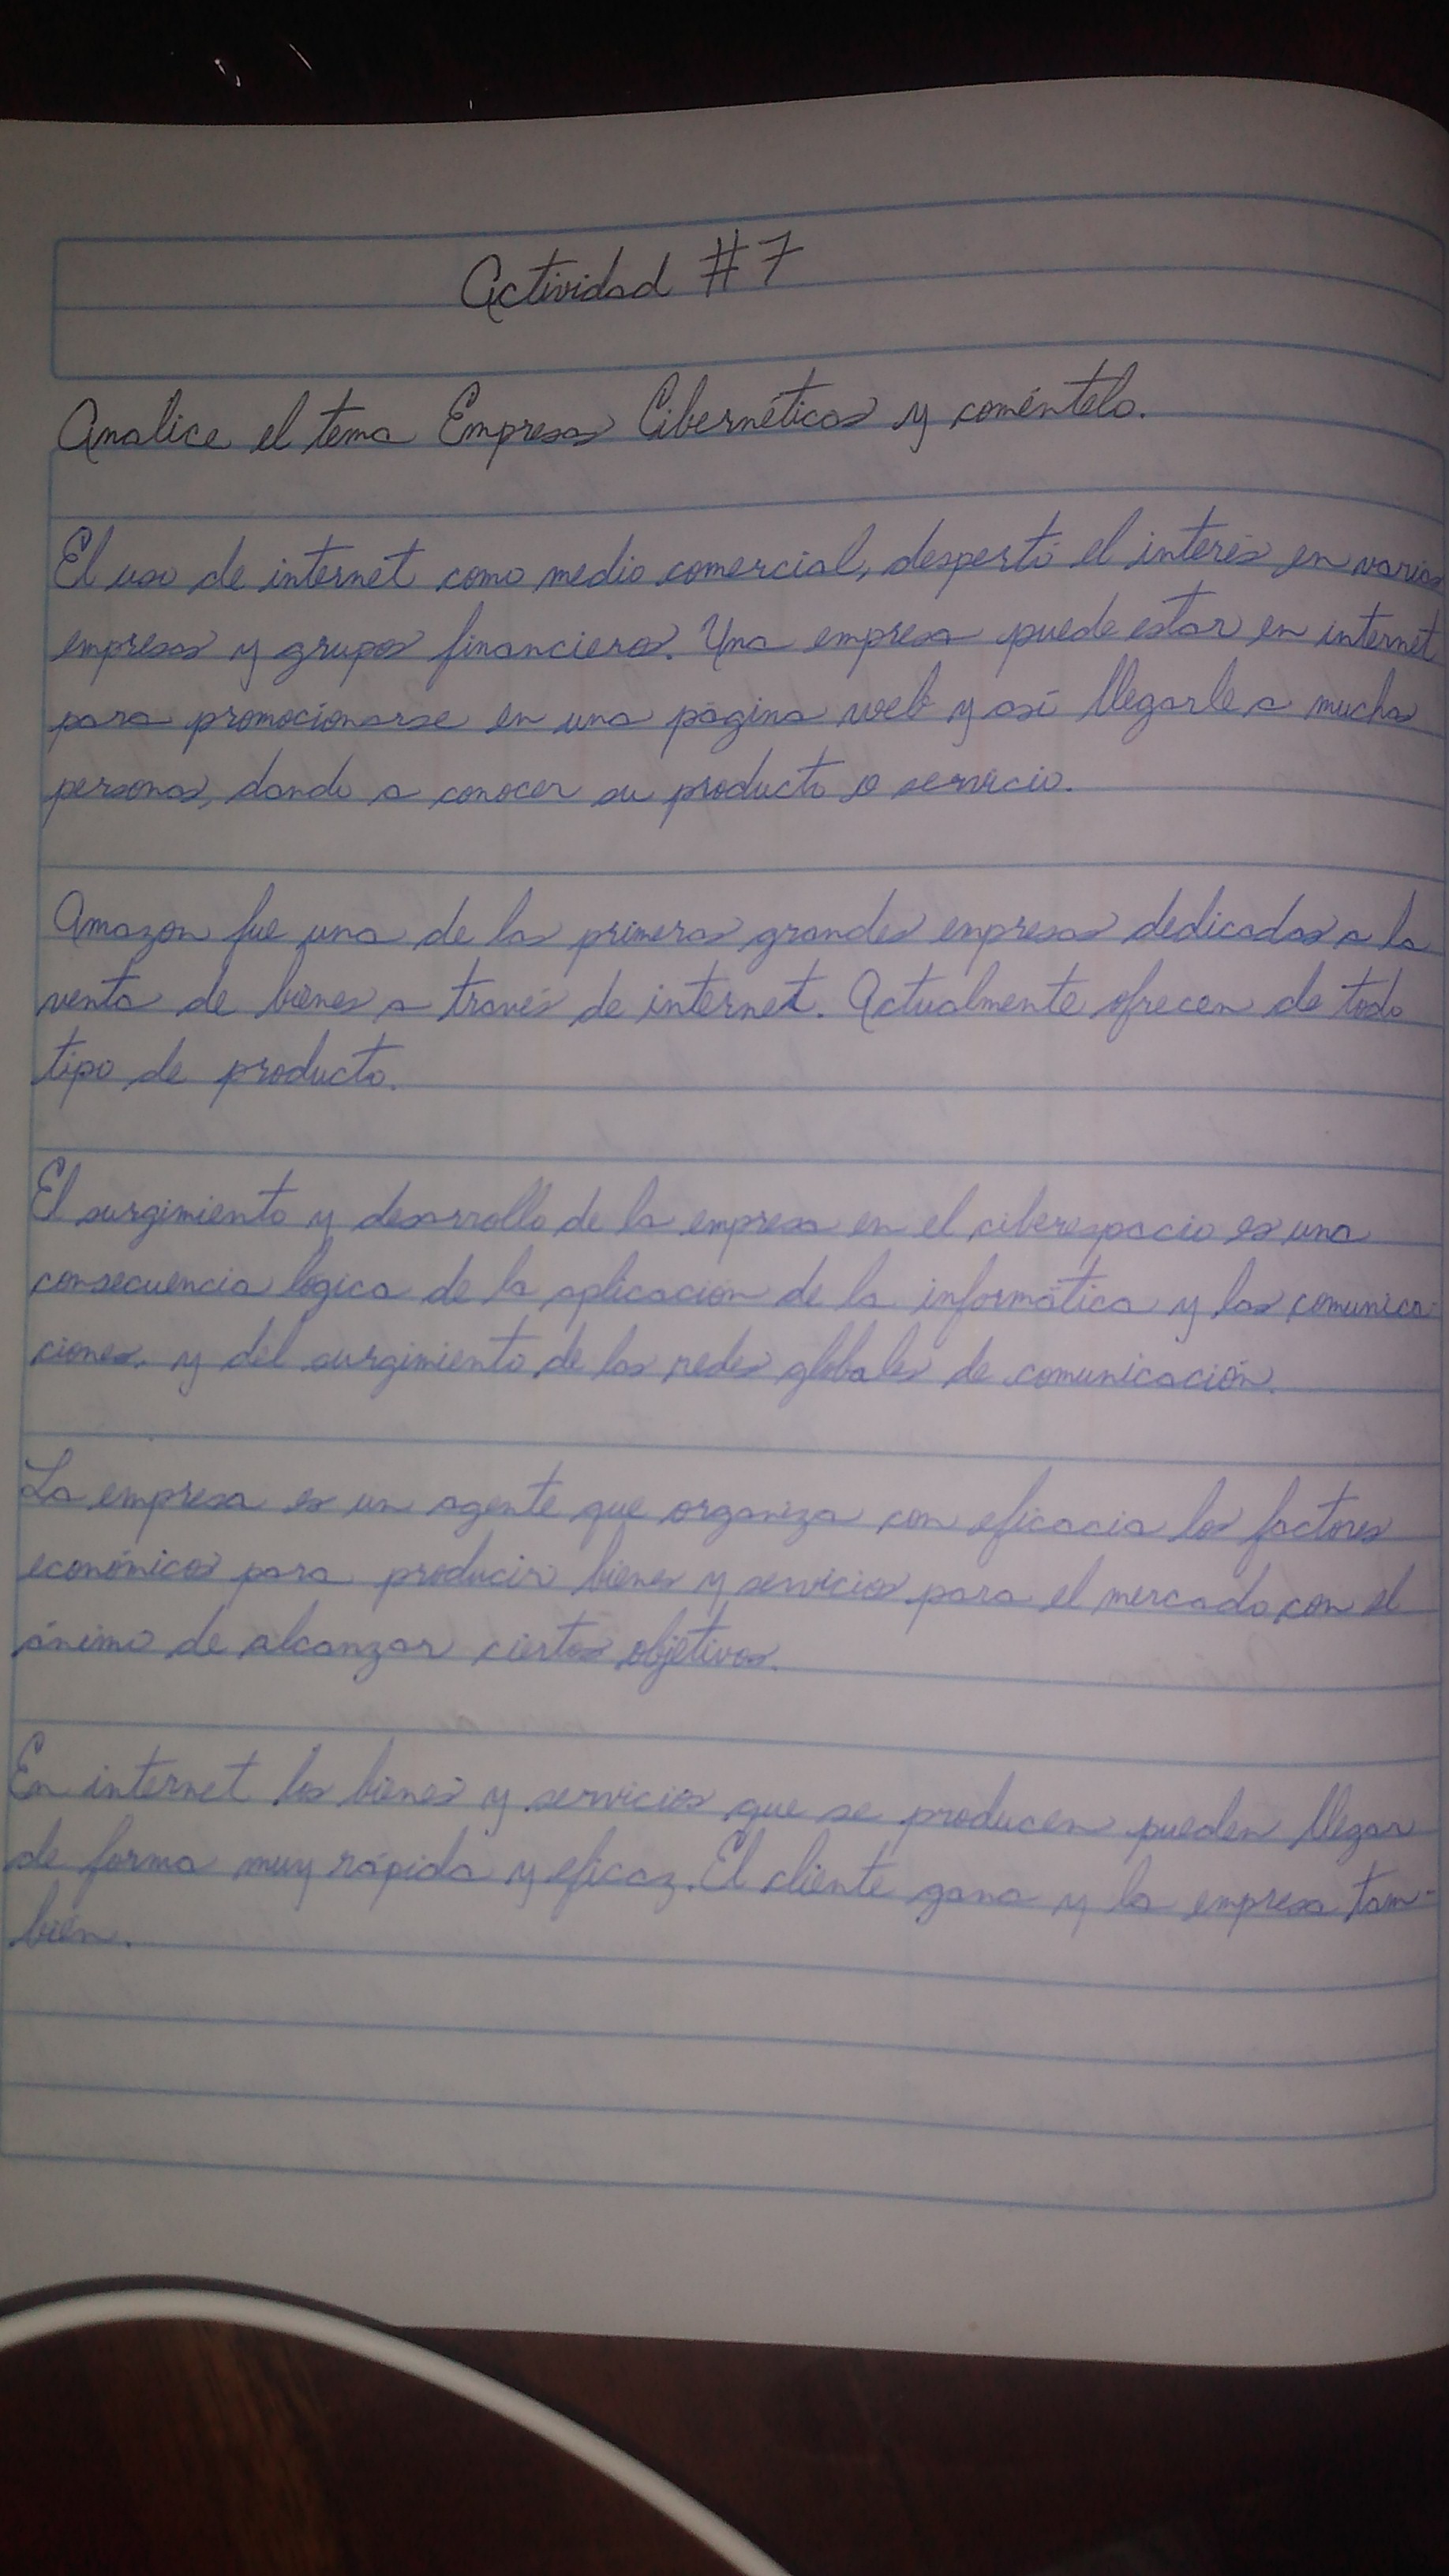 Actividad #7
Analice el tema Empresas Cibernéticas y coméntelo.
El uso de internet como medio comercial, despertó el interés en varias
empresas y grupos financieros. Una empresa puede estar en internet
para promocionarse en una página web y así llegarle a muchas
personas, dando a conocer su producto o servicio.
Amazon fue una de las primeras grandes empresas dedicadas a la
venta de bienes a través de internet. Actualmente ofrecen de todo
tipo de producto.
El surgimiento y desarrollo de la empresa en el ciberespacio es una
consecuencia lógica de la aplicación de la informática y las comunica-
ciones. y del surgimiento de las redes globales de comunicación.
La empresa es un agente que organiza con eficacia los factores
económicos para producir bienes y servicios para el mercado con el
ánimo de alcanzar ciertos objetivos.
En internet los bienes y servicios que se producen pueden llegar
de forma muy rápida y eficaz. El cliente gana y la empresa tam-
bién.